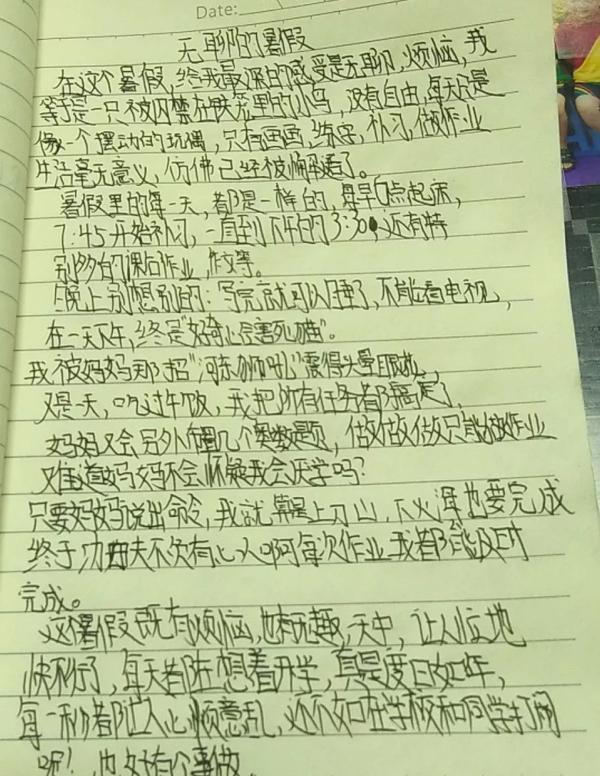 Date:
无聊的暑假
在这个暑假,终我最深的感受是无聊,烦恼,我
等于是一只被囚禁在铁笼里的小鸟,没有自由,每天只是
像一个摆动的玩偶,只有画画,练字,补习,做作业
生活毫无意义,仿佛已经被懒透了。
暑假里的每一天,都是一样的,每早6点起床,
7:45开始补习,一直到下午的3:30,还有特
别多的课后作业,作文等。
晚上别想别的:写完就可以睡了,不能看电视,
在一天下午,终是"好奇心是害死猫"。
我被妈妈那招"河东狮吼"震得头晕眼花,
又是一天,吃过午饭,我把所有任务都搞定了,
妈妈又会另外布置几个奥数题,做做做只能做作业
难道妈妈不会怀疑我会厌学吗?
只要妈妈说出命令,我就算是上刀山,下火海也要完成
终于功夫不负有心人啊每次作业我都能及时
完成。
这暑假既有烦恼,也有无趣,天中,让人
快不行了,每天都在想着开学,真是度日如年,
每一秒都让人心烦意乱,还不如在学校和同学打闹
呢!也好有个事做